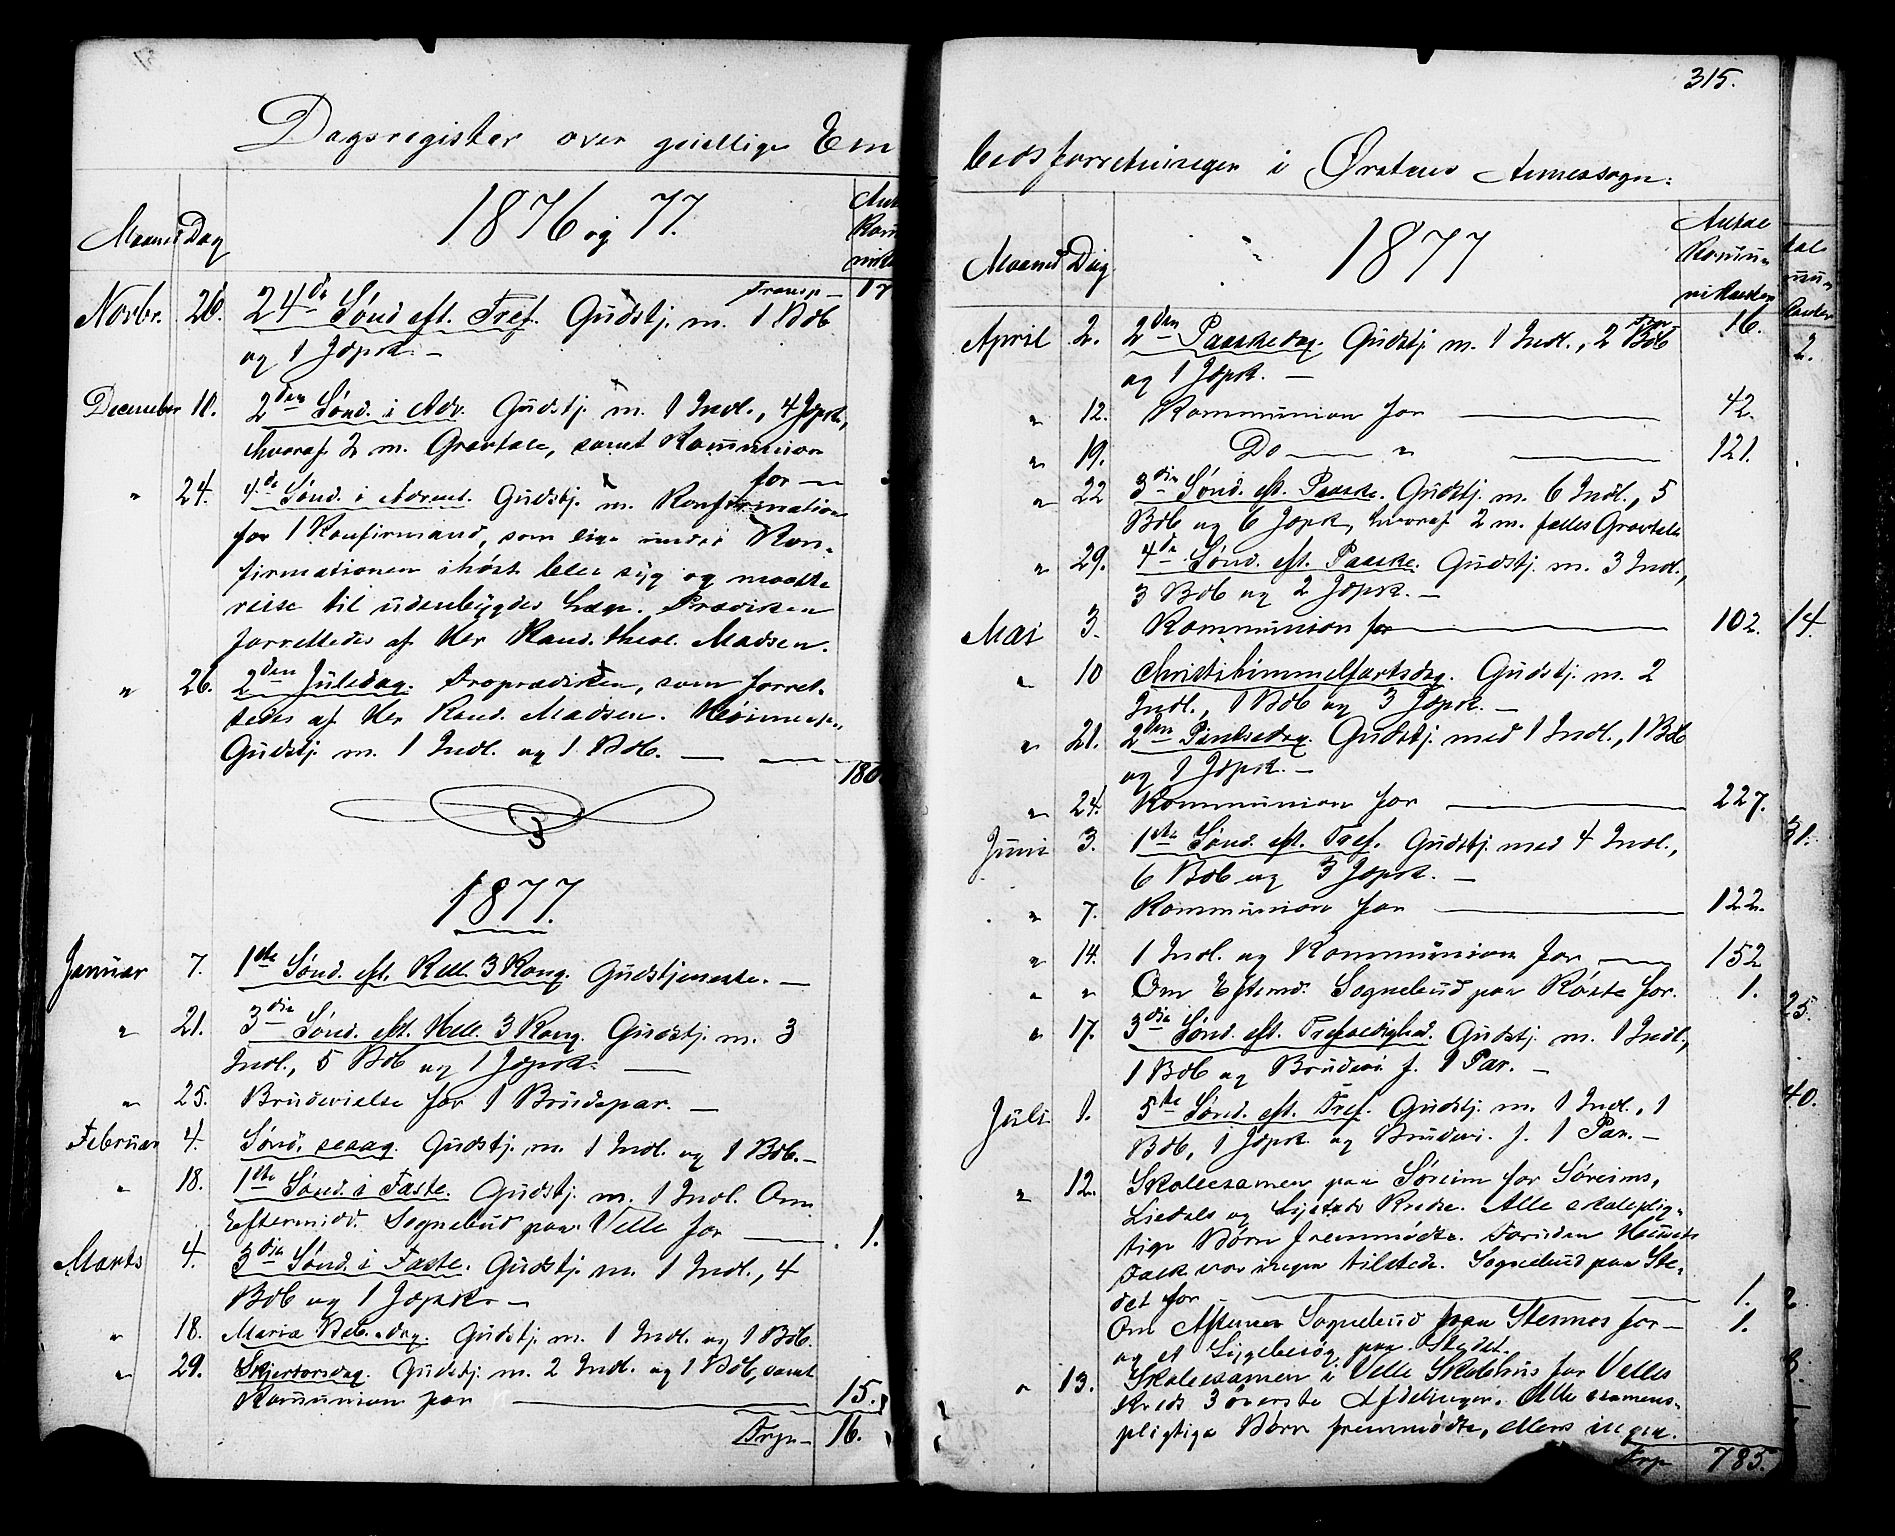 315.
Dagsregister over geistlige Em
1876 og 77.
Maaned Dag
Transp —
Novbr. 26. 24de Sønd. eft. Tref. Gudstj. m. 1 Bdb
og 1 Jdpk. —
December 10. 2den Sønd. i Adv. Gudstj. m. 1 Indl., 4 Jdpk.,
hvoraf 2 m. Gravtale, samt Kommunion
for —
" 24. 4de Sønd. i Advent. Gudstj. m. Konfirmation
for 1 Konfirmand, som lige under Kon-
firmationen ihøst blev syg og maatte
reise til udenbygdes Læge. Prædiken
forrettedes af Hr Kand. theol. Madsen.
" 26. 2den Juledag. Froprædiken, som forret-
tedes af Hr Kand. Madsen. Høimesse-
Gudstj. m. 1 Indl. og 1 Bdb. —
180
1877.
Januar 7. 1ste Sønd. eft. Hell. 3 Kong. Gudstjeneste. —
" 21. 3die Sønd. eft. Hell. 3 Kong. Gudstj. m. 3
Indl., 5 Bdb og 1 Jdpk. —
" 25. Brudevielse for 1 Brudepar. —
Februar 4. Sønd. sexag. Gudstj. m. 1 Indl. og 1 Bdb. —
" 18. 1ste Sønd. i Faste. Gudstj. m. 1 Indl. Om
Eftermidd. Sognebud paa Velle for — 1.
Marts 4. 3die Sønd. i Faste. Gudstj. m. 1 Indl., 4
Bdb og 1 Jdpk. —
" 18. Mariæ Beb.-dag. Gudstj. m. 1 Indl. og 1 Bdb.
" 29. Skjertorsdag. Gudstj. m. 2 Indl. og 1 Bdb, samt
Kommunion for — 15.
Trp — 16.
bedsforretninger i Ørstens Annexsogn:
1877
Maaned Dag
Antal
Kommu-
nikanter
Trp
April 2. 2den Paaskedag. Gudstj. m. 1 Indl., 2 Bdb 16.
og 1 Jdpk. —
" 12. Kommunion for — 42.
" 19. Do — " — 121.
" 22 3die Sønd. eft. Paaske. Gudstj. m. 6 Indl., 5
Bdb og 6 Jdpk, hvoraf 2 m. fælles Gravtale
" 29. 4de Sønd. eft. Paaske. Gudstj. m. 3 Indl.,
3 Bdb og 2 Jdpk. —
Mai 3. Kommunion for — 102.
" 10 Christihimmelfartsdag. Gudstj. m. 2
Indl., 1 Bdb og 3 Jdpk. —
" 21. 2den Pintsedag. Gudstj. med 1 Indl., 1 Bdb
og 1 Jdpk. —
" 24. Kommunion for — 227.
Juni 3. 1ste Sønd. eft. Tref. Gudstj. med 4 Indl.,
6 Bdb og 3 Jdpk. —
" 7. Kommunion for — 122.
" 14. 1 Indl. og Kommunion for — 152
" " Om Eftermd. Sognebud paa Røste for. 1.
" 17. 3die Sønd. eft. Trefoldighed. Gudstj. m. 1 Indl.,
1 Bdb og Brudevi. f. 1 Par. —
Juli 1. 5te Sønd. eft. Tref. Gudstj. m. 1 Indl., 1
Bdb, 1 Jdpk. og Brudevi. f. 1 Par. —
" 12. Skoleexamen paa Søreim for Søreims,
Liedals og Kreds. Alle skoleplig-
tige Børn fremmødte. Foruden
var ingen tilstede. Sognebud paa Ste-
det for — 1.
Om Aftenen Sognebud paa Stennes for — 1.
og et Sygebesøg paa Stedet.
" 13. Skoleexamen i Velle Skolehus for Velles
Kreds 3 øverste Afdelinger. Alle examens-
pligtige Børn fremmødte, ellers ingen.
Trp 785.
2.
14.
31.
25.
40.
2.